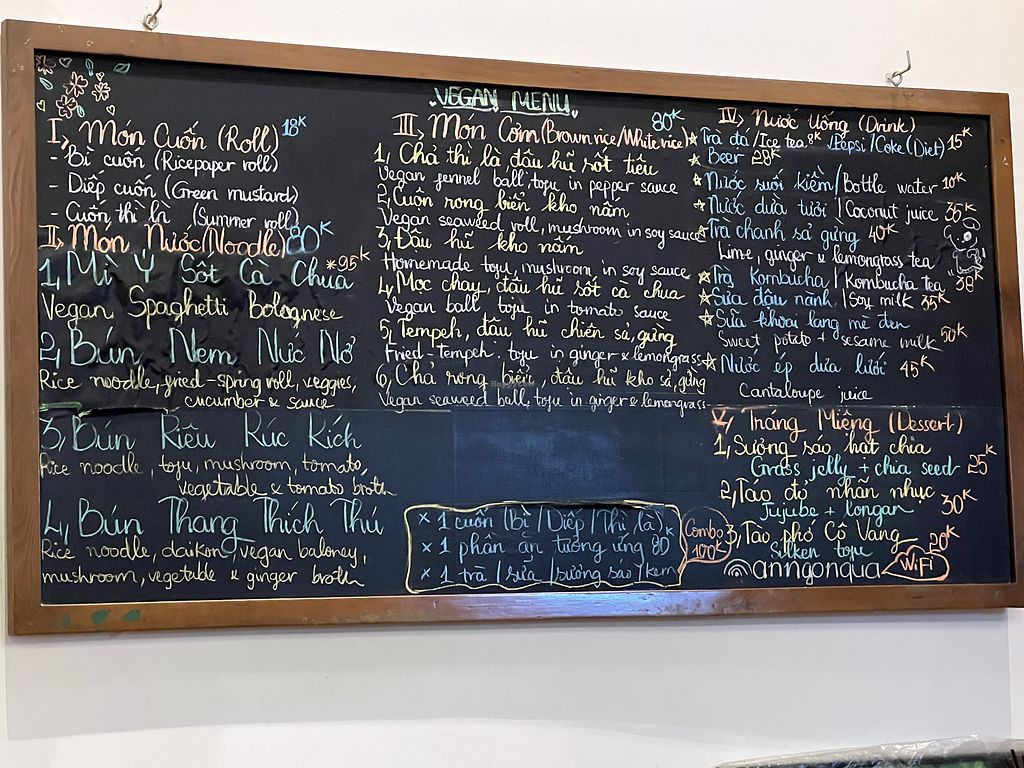 VEGAN MENU
I, Món Cuốn (Roll) 18K
- Bì cuốn (Ricepaper roll)
- Diếp cuốn (Green mustard)
- Cuốn thì là (Summer roll)
II, Món Nước (Noodle) 80K
1, Mì Ý Sốt Cà Chua *95K
Vegan Spaghetti Bolognese
2, Bún Nem Nức Nở
Rice noodle, fried-spring roll, veggies,
cucumber & sauce
3, Bún Riêu Rúc Rích
Rice noodle, tofu, mushroom, tomato,
vegetable & tomato broth
4, Bún Thang Thích Thú
Rice noodle, daikon, vegan baloney,
mushroom, vegetable & ginger broth
III, Món Cơm (Brown rice/White rice) 80K
1, Chả thì là, đậu hũ sốt tiêu
Vegan fennel ball, tofu in pepper sauce
2, Cuộn rong biển kho nấm
Vegan seaweed roll, mushroom in soy sauce
3, Đậu hũ kho nấm
Homemade tofu, mushroom in soy sauce
4, Mọc chay, đậu hũ sốt cà chua
Vegan ball, tofu in tomato sauce
5, Tempeh, đậu hũ chiên sả, gừng
Fried-Tempeh, tofu in ginger & lemongrass
6, Chả rong biển, đậu hũ kho sả, gừng
Vegan seaweed ball, tofu in ginger & lemongrass
x 1 cuốn (Bì / Diếp / Thì là)
x 1 phần ăn tương ứng 80K
x 1 trà / sữa / sương sáo / kem
Combo
100K
IV, Nước Uống (Drink)
Trà đá/Ice tea 8K /Pepsi/Coke (Diet) 15K
Beer 28K
Nước suối kiềm/Bottle water 10K
Nước dừa tươi/Coconut juice 35K
Trà chanh sả gừng 40K
Lime, ginger & lemongrass tea
Trà Kombucha/Kombucha Tea 38K
Sữa đậu nành/Soy milk 35K
Sữa khoai lang mè đen
Sweet potato + sesame milk 50K
Nước ép dưa lưới 45K
Cantaloupe juice
V, Tráng Miệng (Dessert)
1, Sương sáo hạt chia
Grass jelly + chia seed 25K
2, Táo đỏ nhãn nhục
Jujube + longan 30K
3, Tào phớ Cô Vang 20K
Silken tofu
anngonqua WiFi